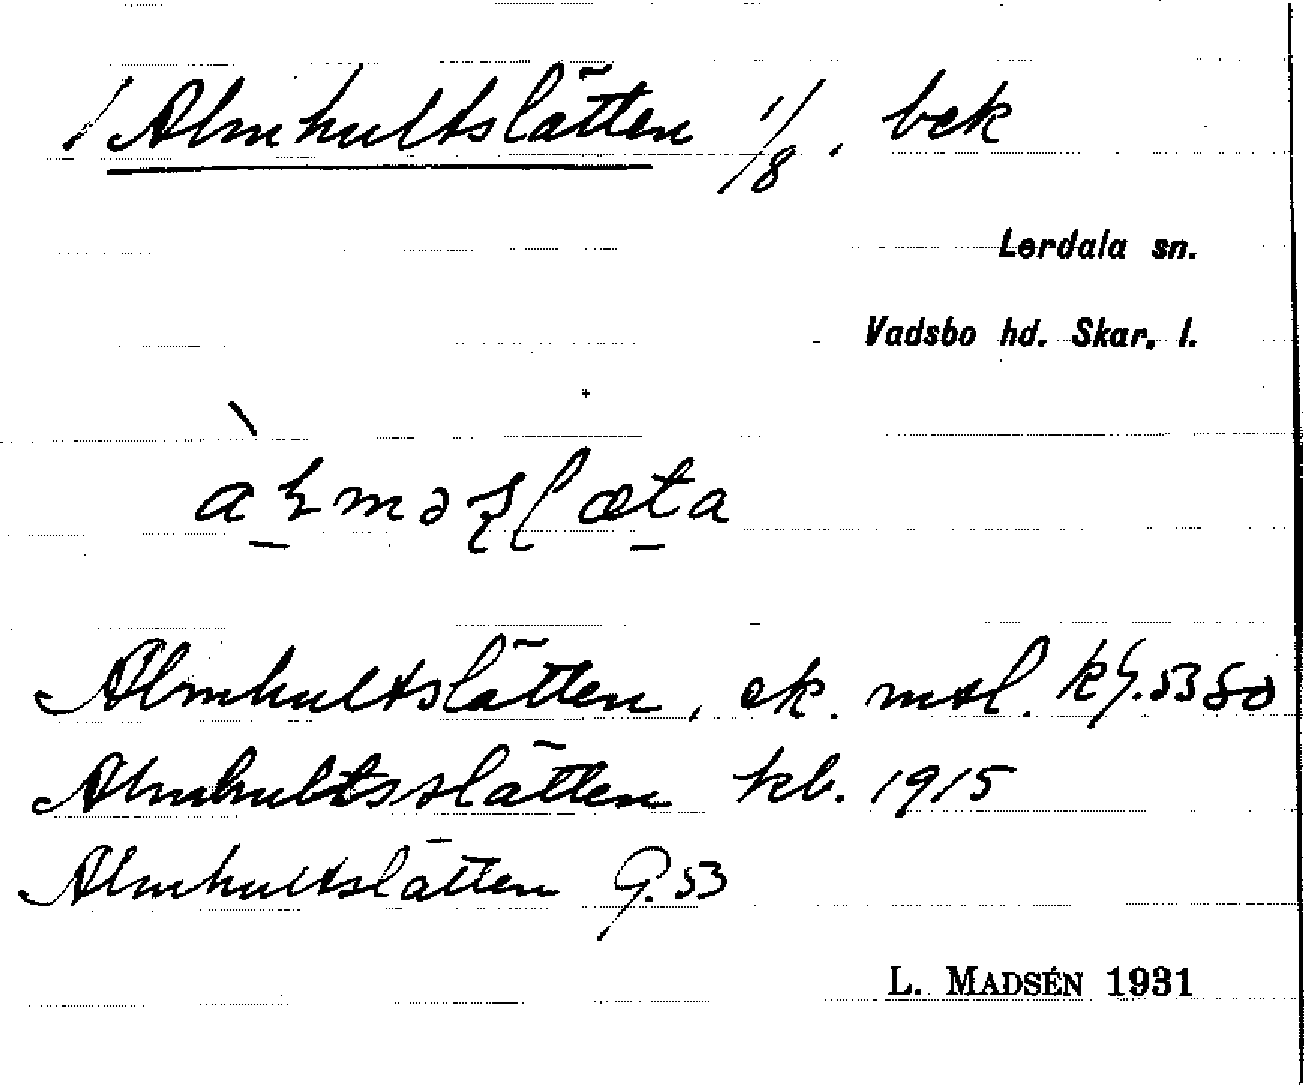 Almhultslätten 1/8. bek
Lerdala sn.
Vadsbo hd. Skar. l.
Almhultslätten, ek. mtl.
Almhultsslätten kb. 1915
Almhultslätten G. 53
L. MADSÉN 1931